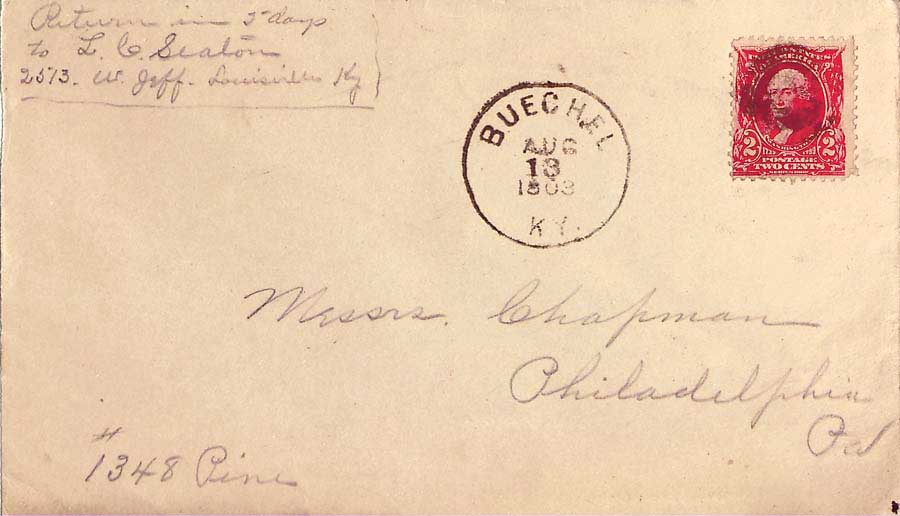 Return in 5 days
to L. C. Seaton
2573. W. Jeff. Louisville Ky
BUECHEL
AUG
13
1903
KY.
UNITED STATES
OF AMERICA
WASHINGTON
2 2
POSTAGE
TWO CENTS
SERIES 1902
Messrs. Chapman
Philadelphia
Pa
#1348 Pine